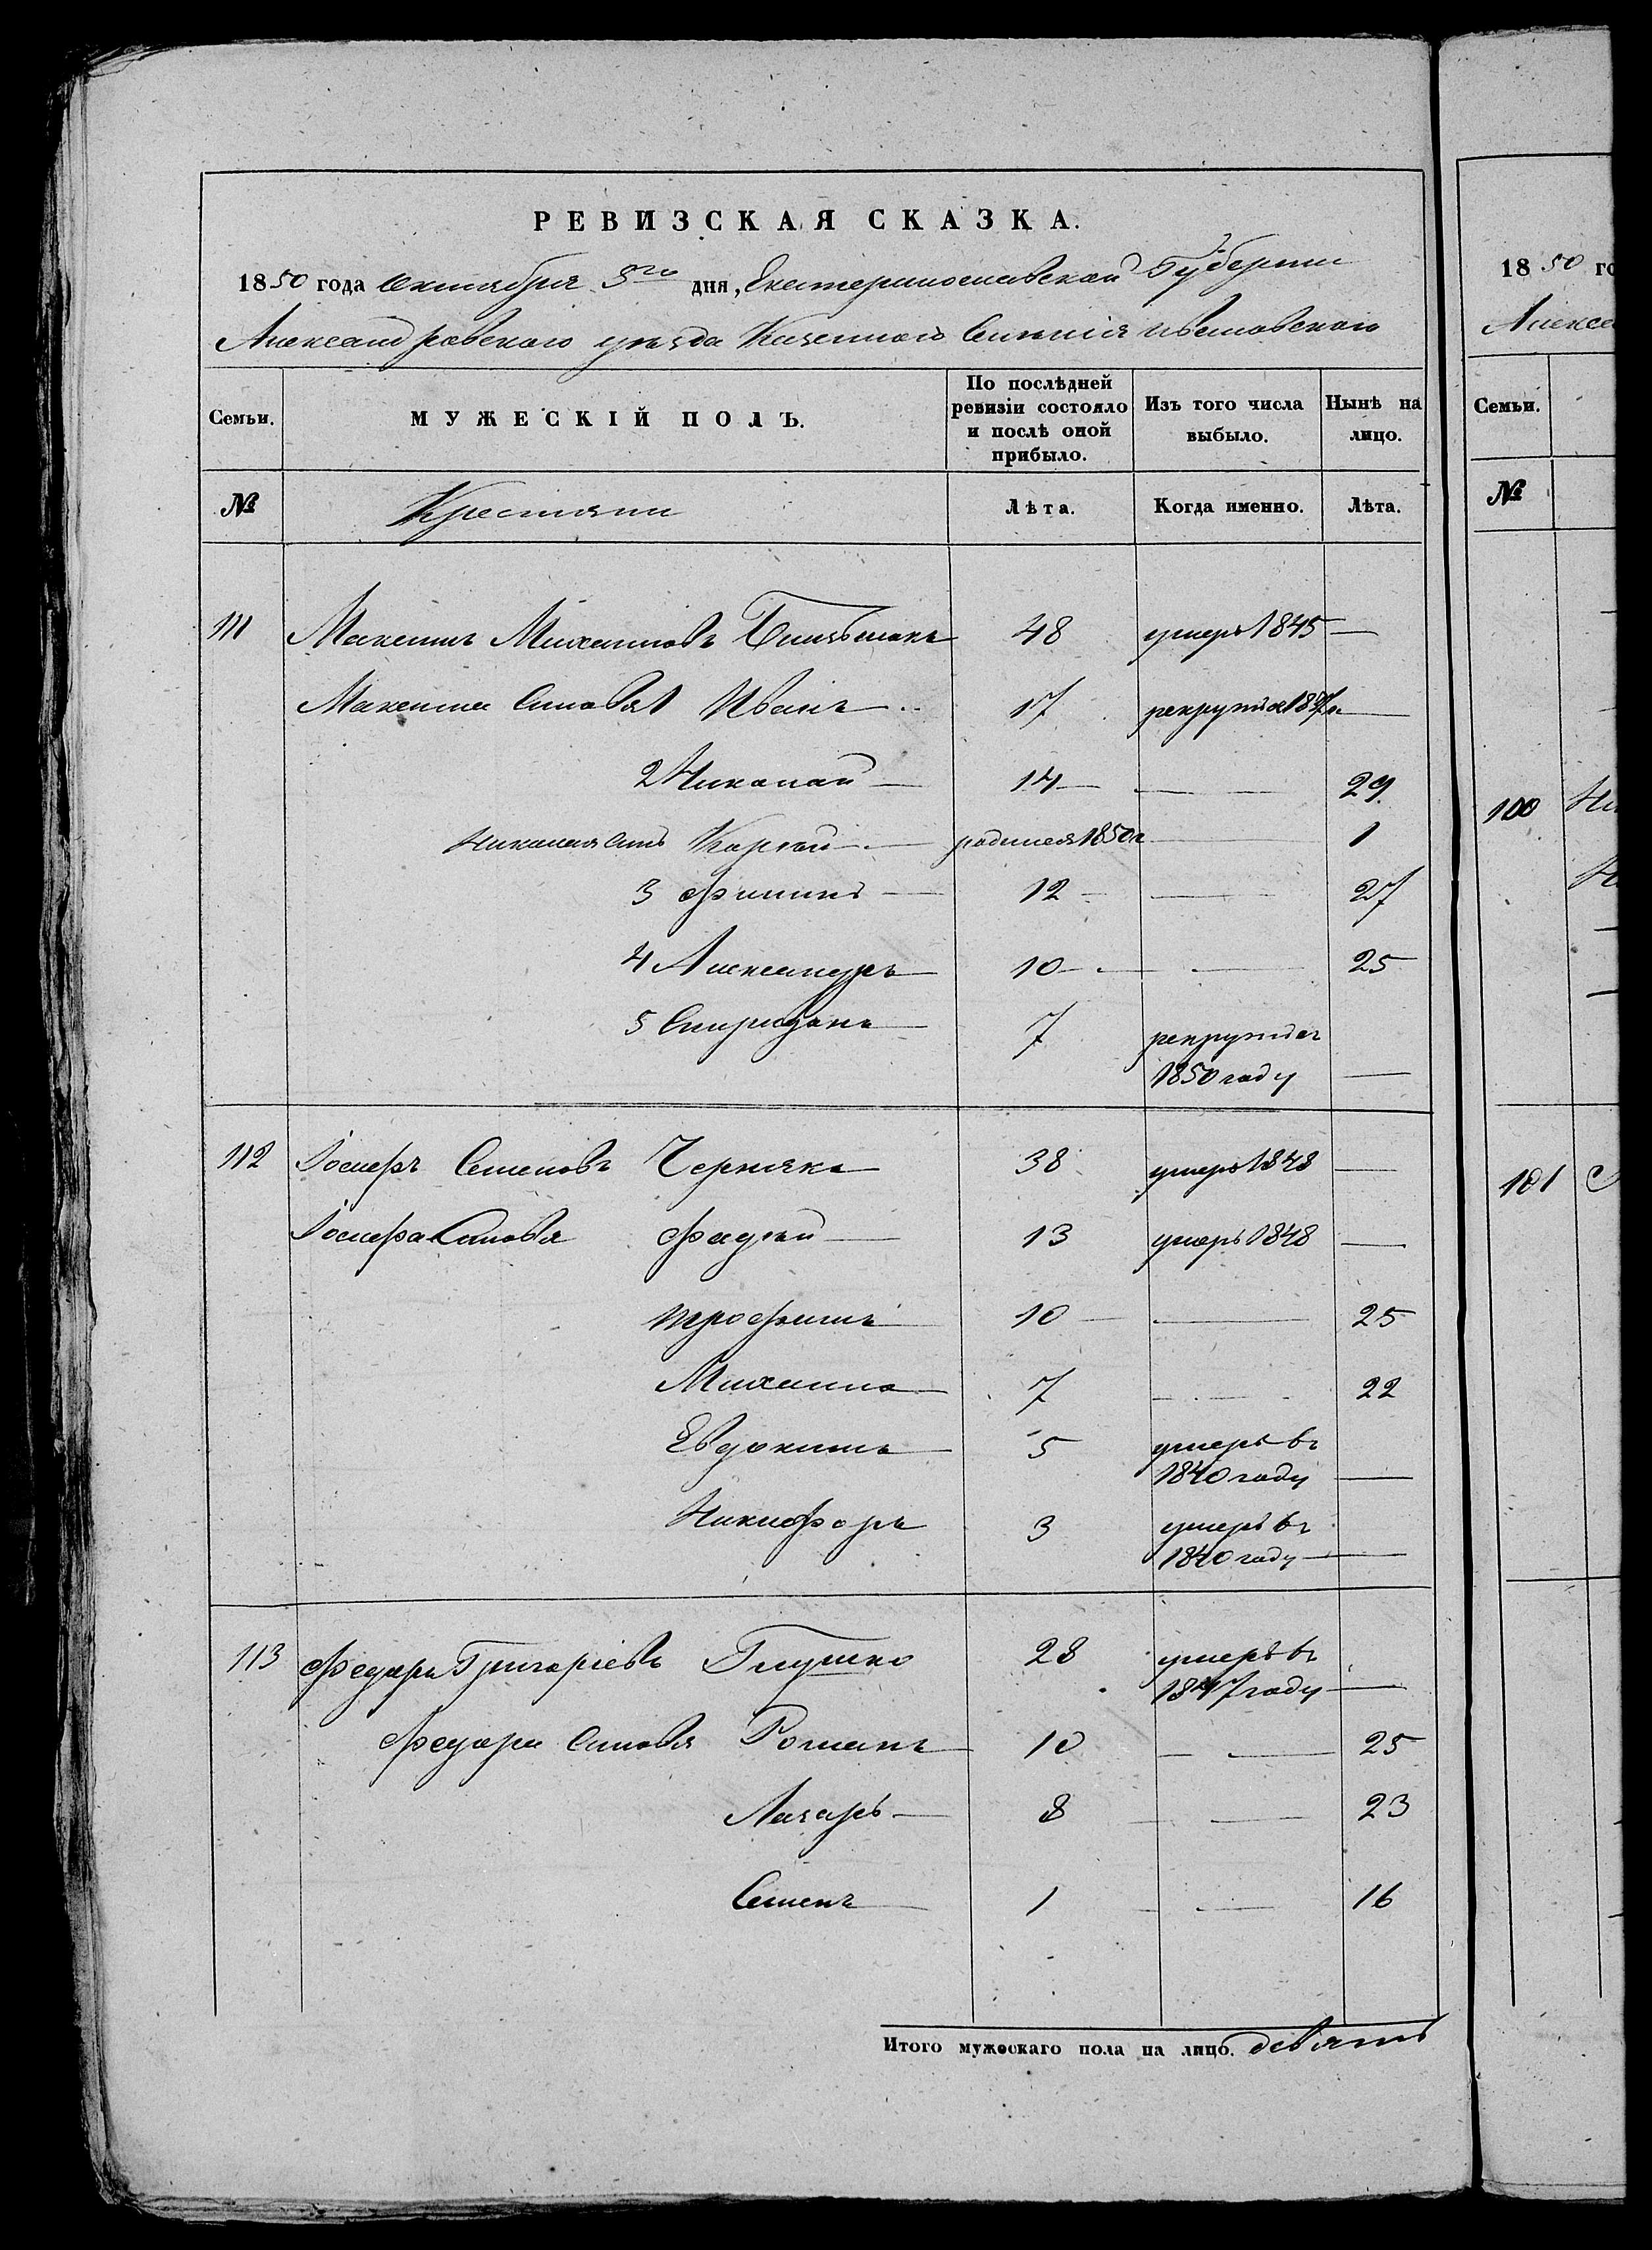 РЕВИЗСКАЯ СКАЗКА.
1850 года Октября 3го дня, Екатеринославской Губернiи
Александровского уезда Казенного Селенiя
Семьи. МУЖЕСКІЙ ПОЛЪ. По послѣдней ревизіи состояло и послѣ оной прибыло. Изъ того числа выбыло. Нынѣ на лицо.
№ Крестяни Лѣта. Когда именно. Лѣта.
111 Максимъ Михаиловъ 48 умеръ 1845 —
Максима Сыновья 1 Иванъ 17 рекрутѣ —
2 Николай — 14 — — 29
Николая Сынъ — родился 1850 г — 1
3 Филипъ — 12 — — 27
4 Александръ — 10 — — 25
5 Спиридонъ — 7 рекрутѣ
1850 году —
112 Іосифъ Семеновъ Чернякъ — 38 умеръ 1848 —
Іосифа Сыновья Фадей — 13 умеръ 1848 —
Трофимъ — 10 — — 25
Михаило — 7 — — 22
Евдокимъ — 5 умеръ въ
1840 году —
Никифоръ 3 умеръ въ
1840 году —
113 Федоръ Григоріевъ Глушко 28 умеръ въ
1847 году —
Федора Сыновья Романъ — 10 — — 25
Лазарь — 8 — — 23
Семенъ — 1 — — 16
Итого мужескаго пола на лицо. девять
1850 го
Алексе
Семьи.
№
100
101